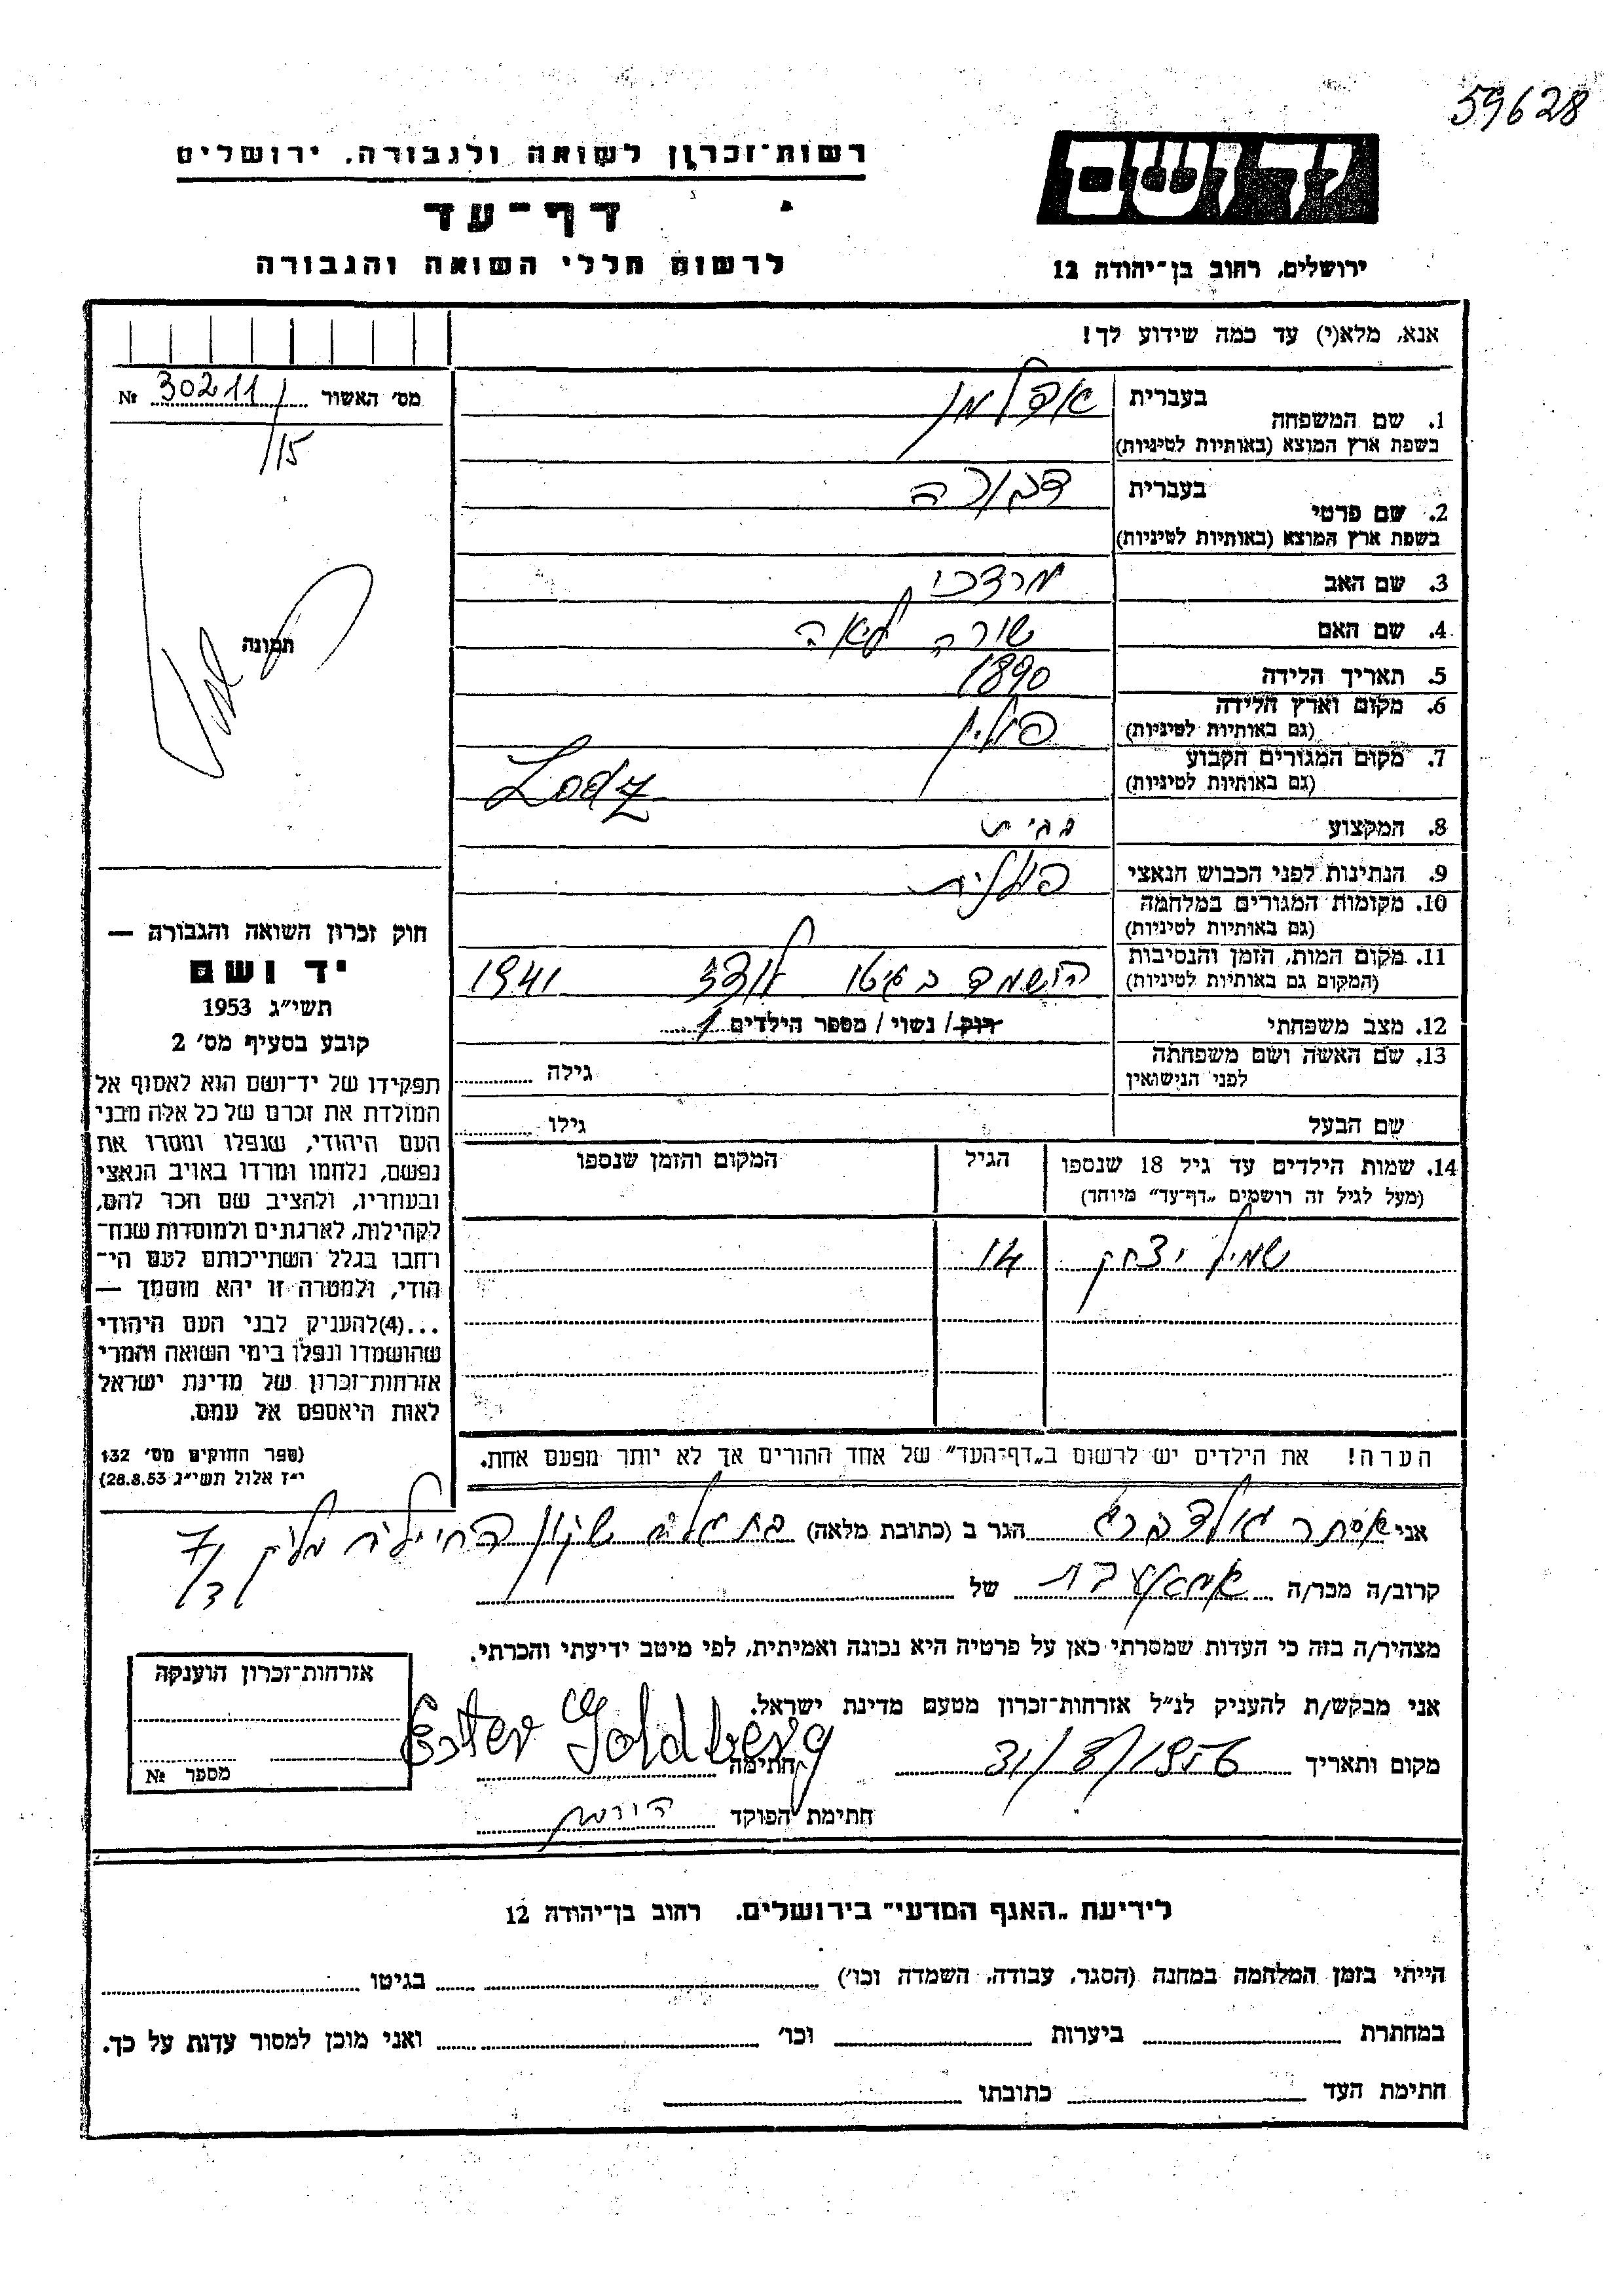 59628
יד ושם
רשות־זכרון לשואה ולגבורה, ירושלים
דף־עד
לרשום חללי השואה והגבורה
ירושלים, רחוב בן־יהודה 12
אנא, מלא(י) עד כמה שידוע לך!
מס' האשור 30211 №
/15
תמונה
1. שם המשפחה
בעברית
בשפת ארץ המוצא (באותיות לטיניות)
2. שם פרטי
בעברית דבורה
בשפת ארץ המוצא (באותיות לטיניות)
3. שם האב מרדכי
4. שם האם שורה לאה
5. תאריך הלידה 1890
6. מקום וארץ הלידה פולין
(גם באותיות לטיניות)
7. מקום המגורים הקבוע Lodz
(גם באותיות לטיניות)
8. המקצוע
9. הנתינות לפני הכבוש הנאצי פולנית
10. מקומות המגורים במלחמה
(גם באותיות לטיניות)
11. מקום המות, הזמן והנסיבות
(המקום גם באותיות לטיניות)
הושמד בגיטו לודז 1941
12. מצב משפחתי רוק / נשוי / מספר הילדים 1
13. שם האשה ושם משפחתה גילה
לפני הנישואין
שם הבעל גילו
14. שמות הילדים עד גיל 18 שנספו הגיל המקום והזמן שנספו
(מעל לגיל זה רושמים „דף־עד" מיוחד)
שמיל יצחק 14
הערה! את הילדים יש לרשום ב„דף־העד" של אחד ההורים אך לא יותר מפעם אחת.
חוק זכרון השואה והגבורה —
יד ושם
תשי״ג 1953
קובע בסעיף מס' 2
תפקידו של יד־ושם הוא לאסוף אל
המולדת את זכרם של כל אלה מבני
העם היהודי, שנפלו ומסרו את
נפשם, נלחמו ומרדו באויב הנאצי
ובעוזריו, ולהציב שם וזכר להם,
לקהילות, לארגונים ולמוסדות שנח־
רחבו בגלל השתייכותם לעם הי־
הודי, ולמטרה זו יהא מוסמך —
...(4) להעניק לבני העם היהודי
שהושמדו ונפלו בימי השואה והמרי
אזרחות־זכרון של מדינת ישראל
לאות היאספם אל עמם.
(ספר החוקים מס' 132
י״ז אלול תשי״ג 28.8.53)
אני אסתר גולדברג הגר ב (כתובת מלאה) שכון
קרוב/ה מכר/ה של
מצהיר/ה בזה כי העדות שמסרתי כאן על פרטיה היא נכונה ואמיתית, לפי מיטב ידיעתי והכרתי.
אני מבקש/ת להעניק לנ״ל אזרחות־זכרון מטעם מדינת ישראל.
מקום ותאריך 31/8/1956 חתימה Ester Goldberg
חתימת הפוקד
אזרחות־זכרון הוענקה
מספר №
לידיעת „האגף המדעי" בירושלים. רחוב בן־יהודה 12
הייתי בזמן המלחמה במחנה (הסגר, עבודה, השמדה וכו') בגיטו
במחתרת ביערות וכו' ואני מוכן למסור עדות על כך.
חתימת העד כתובתו